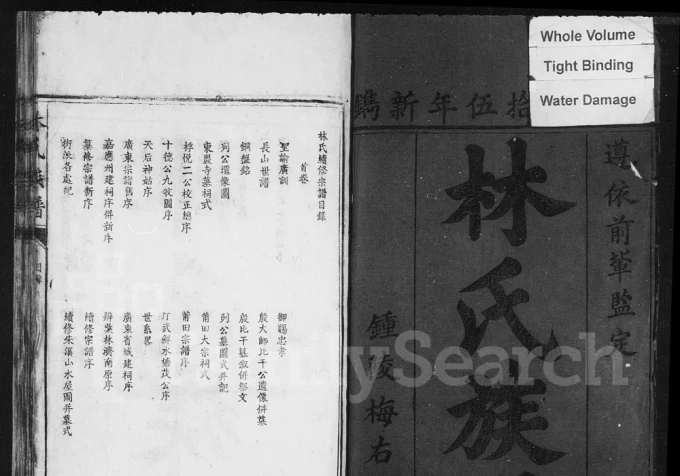 Whole Volume
Tight Binding
Water Damage
拾伍年新鐫
遵依前輩監定
林氏族
鍾陵梅右
林氏續修宗譜目錄
首卷
聖諭廣訓
御賜忠孝
長山世譜
殷大師比干公遺像併墓
銅盤銘
殷比干墓銘併祭文
列公遺像圖
列公墓圖式并記
東農寺墓祠式
莆田大宗祠式
梓悅二公校正總序
莆田宗譜序
十德公九牧圖序
汀武鮮水塘茂公序
天后神姑序
世系畧
廣東宗譜舊序
廣東省城建祠序
嘉應州建祠序併新序
辨築林濟南原序
纂修宗譜新序
續修宗譜序
街派各處祀
續修朱溪山水屋圖并墓式
FamilySearch